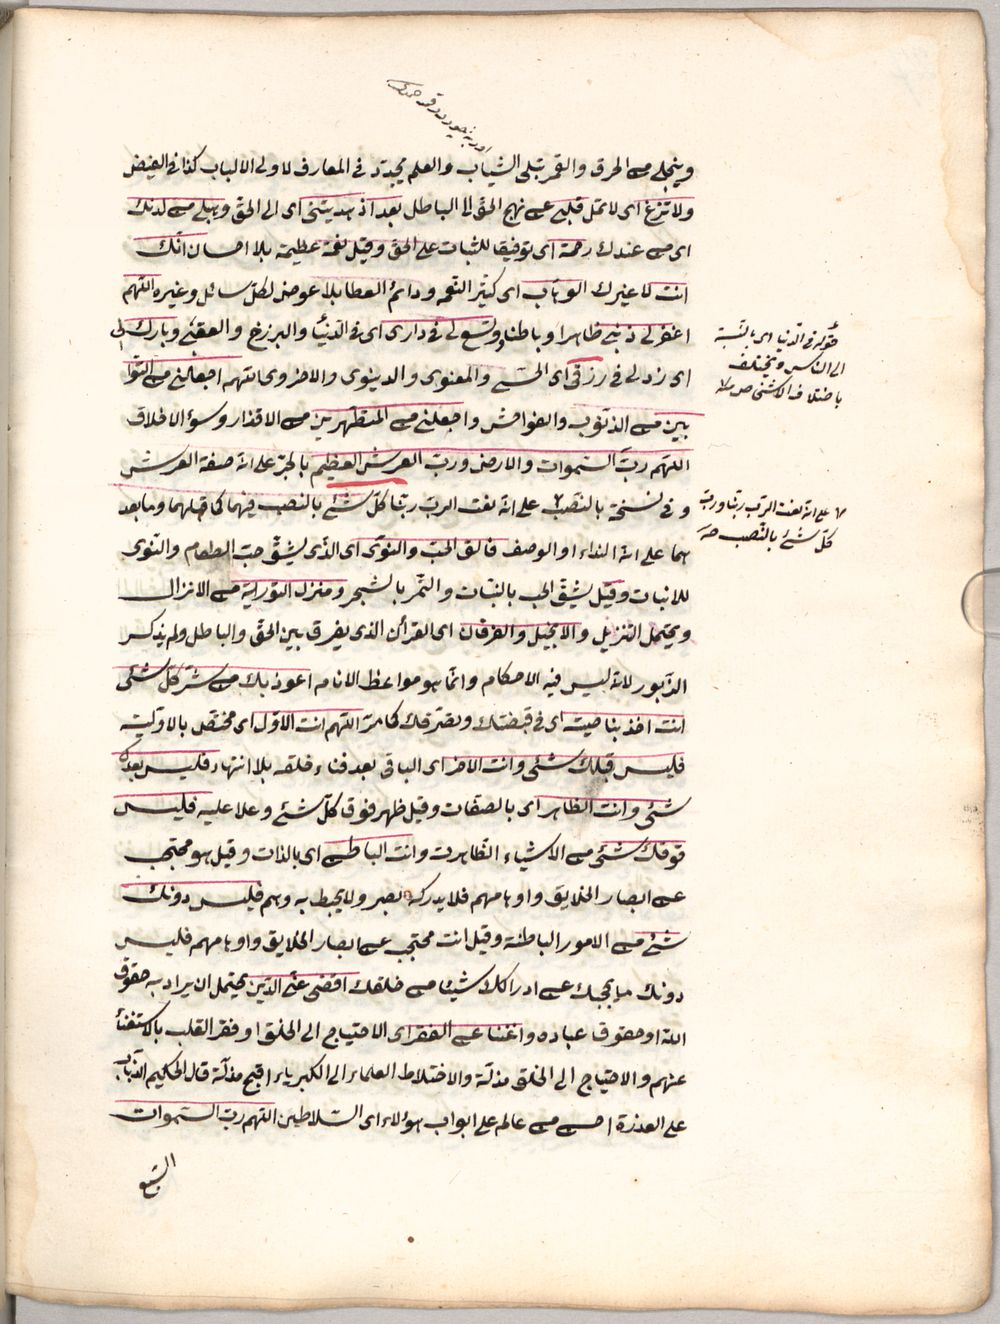 وينجلي من الحرق والقمر تبلى الثياب والعلم يتجدد في المعارف لاولى الالباب كذا في الفيض
ولا تزغ اى لا تمل قلبى عن نهج الحق الى الباطل بعد اذ هديتنى اى الى الحق وهب لى من لدنك
اى من عندك رحمة اى توفيقا للثبات على الحق وقيل نعمة عظيمة بلا احسان انك
انت لا غيرك الوهاب اى كثير النعمه ودائم العطا بلا عوض لكل سائل وغيره اللهم
اغفر لى ذنبى ظاهرا وباطنا ووسع لى فى دارى اى فى الدنيا والبرزخ والعقبى وبارك لى
اى زد لى فى رزقى اى الحسى والمعنوى والدينوى والاخروى اللهم اجعلنى من التوا
بين من الذنوب والفواحش واجعلنى من المتطهرين من الاقذار وسوء الاخلاق
اللهم رب السموات والارض ورب العرش العظيم بالجر على انه صفة العرش
وفى نسخة بالنصب على انه نعت الرب ربنا كل شئ بالنصب فيهما كما قبلهما وما بعد
هما على انه النداء او الوصف فالق الحب والنوى اى الذى يشق حب الطعام والنوى
للانبات وقيل يشق الحب بالنبات والثمر بالشجر ومنزل التورية من الانزال
ويحتمل التنزيل والانجيل والفرقان اى القرأن الذى يفرق بين الحق والباطل ولم يذكر
الزبور لانه ليس فيه الاحكام وانما هو مواعظ الانام اعوذ بك من شر كل شئ
انت اخذ بناصيته اى فى قبضتك وتصرفك كما مر اللهم انت الاول اى مختص بالاولية
فليس قبلك شئ وانت الاخر اى الباقى بعد فناء خلقه بلا انتهاء فليس بعدك
شئ وانت الظاهر اى بالصفات وقيل ظهر فوق كل شئ وعلا عليه فليس
فوقك شئ من الاشياء الظاهرت وانت الباطن اى بالذات وقيل هو محتجب
عن ابصار الخلايق واوهامهم فلا يدركه بصر ولا يحيط به وهم فليس دونك
شئ من الامور الباطنة وقيل انت محتجب عن ابصار الخلايق واوهامهم فليس
دونك ما يحجبك عن ادراكك شيئا من خلقك اقض عنى الدين يحتمل ان يراد به حقوق
الله او حقوق عباده واغننا عن الفقر اى الاحتياج الى الخلق او فقر القلب بالاستغناء
عنهم والاحتياج الى الخلق مذلة والاختلاط العلماء الى الكبرياء اقبح مذلة قال الحكيم الذباب
على العذرة احسن من عالم على ابواب هؤلاء اى السلاطين اللهم رب السموات
السبع
قوله فى الدنيا اى بالنسبة
الى الناس ويختلف
باختلاف
على انه نعت الرب ربنا ورب
كل شئ بالنصب